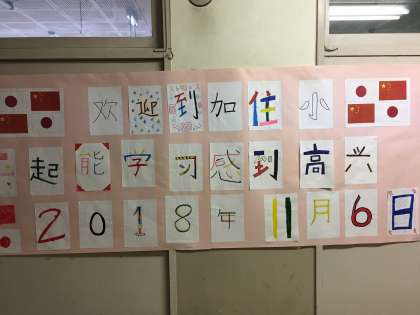 欢迎到加住小
起能学习感到高兴
2018年11月6日